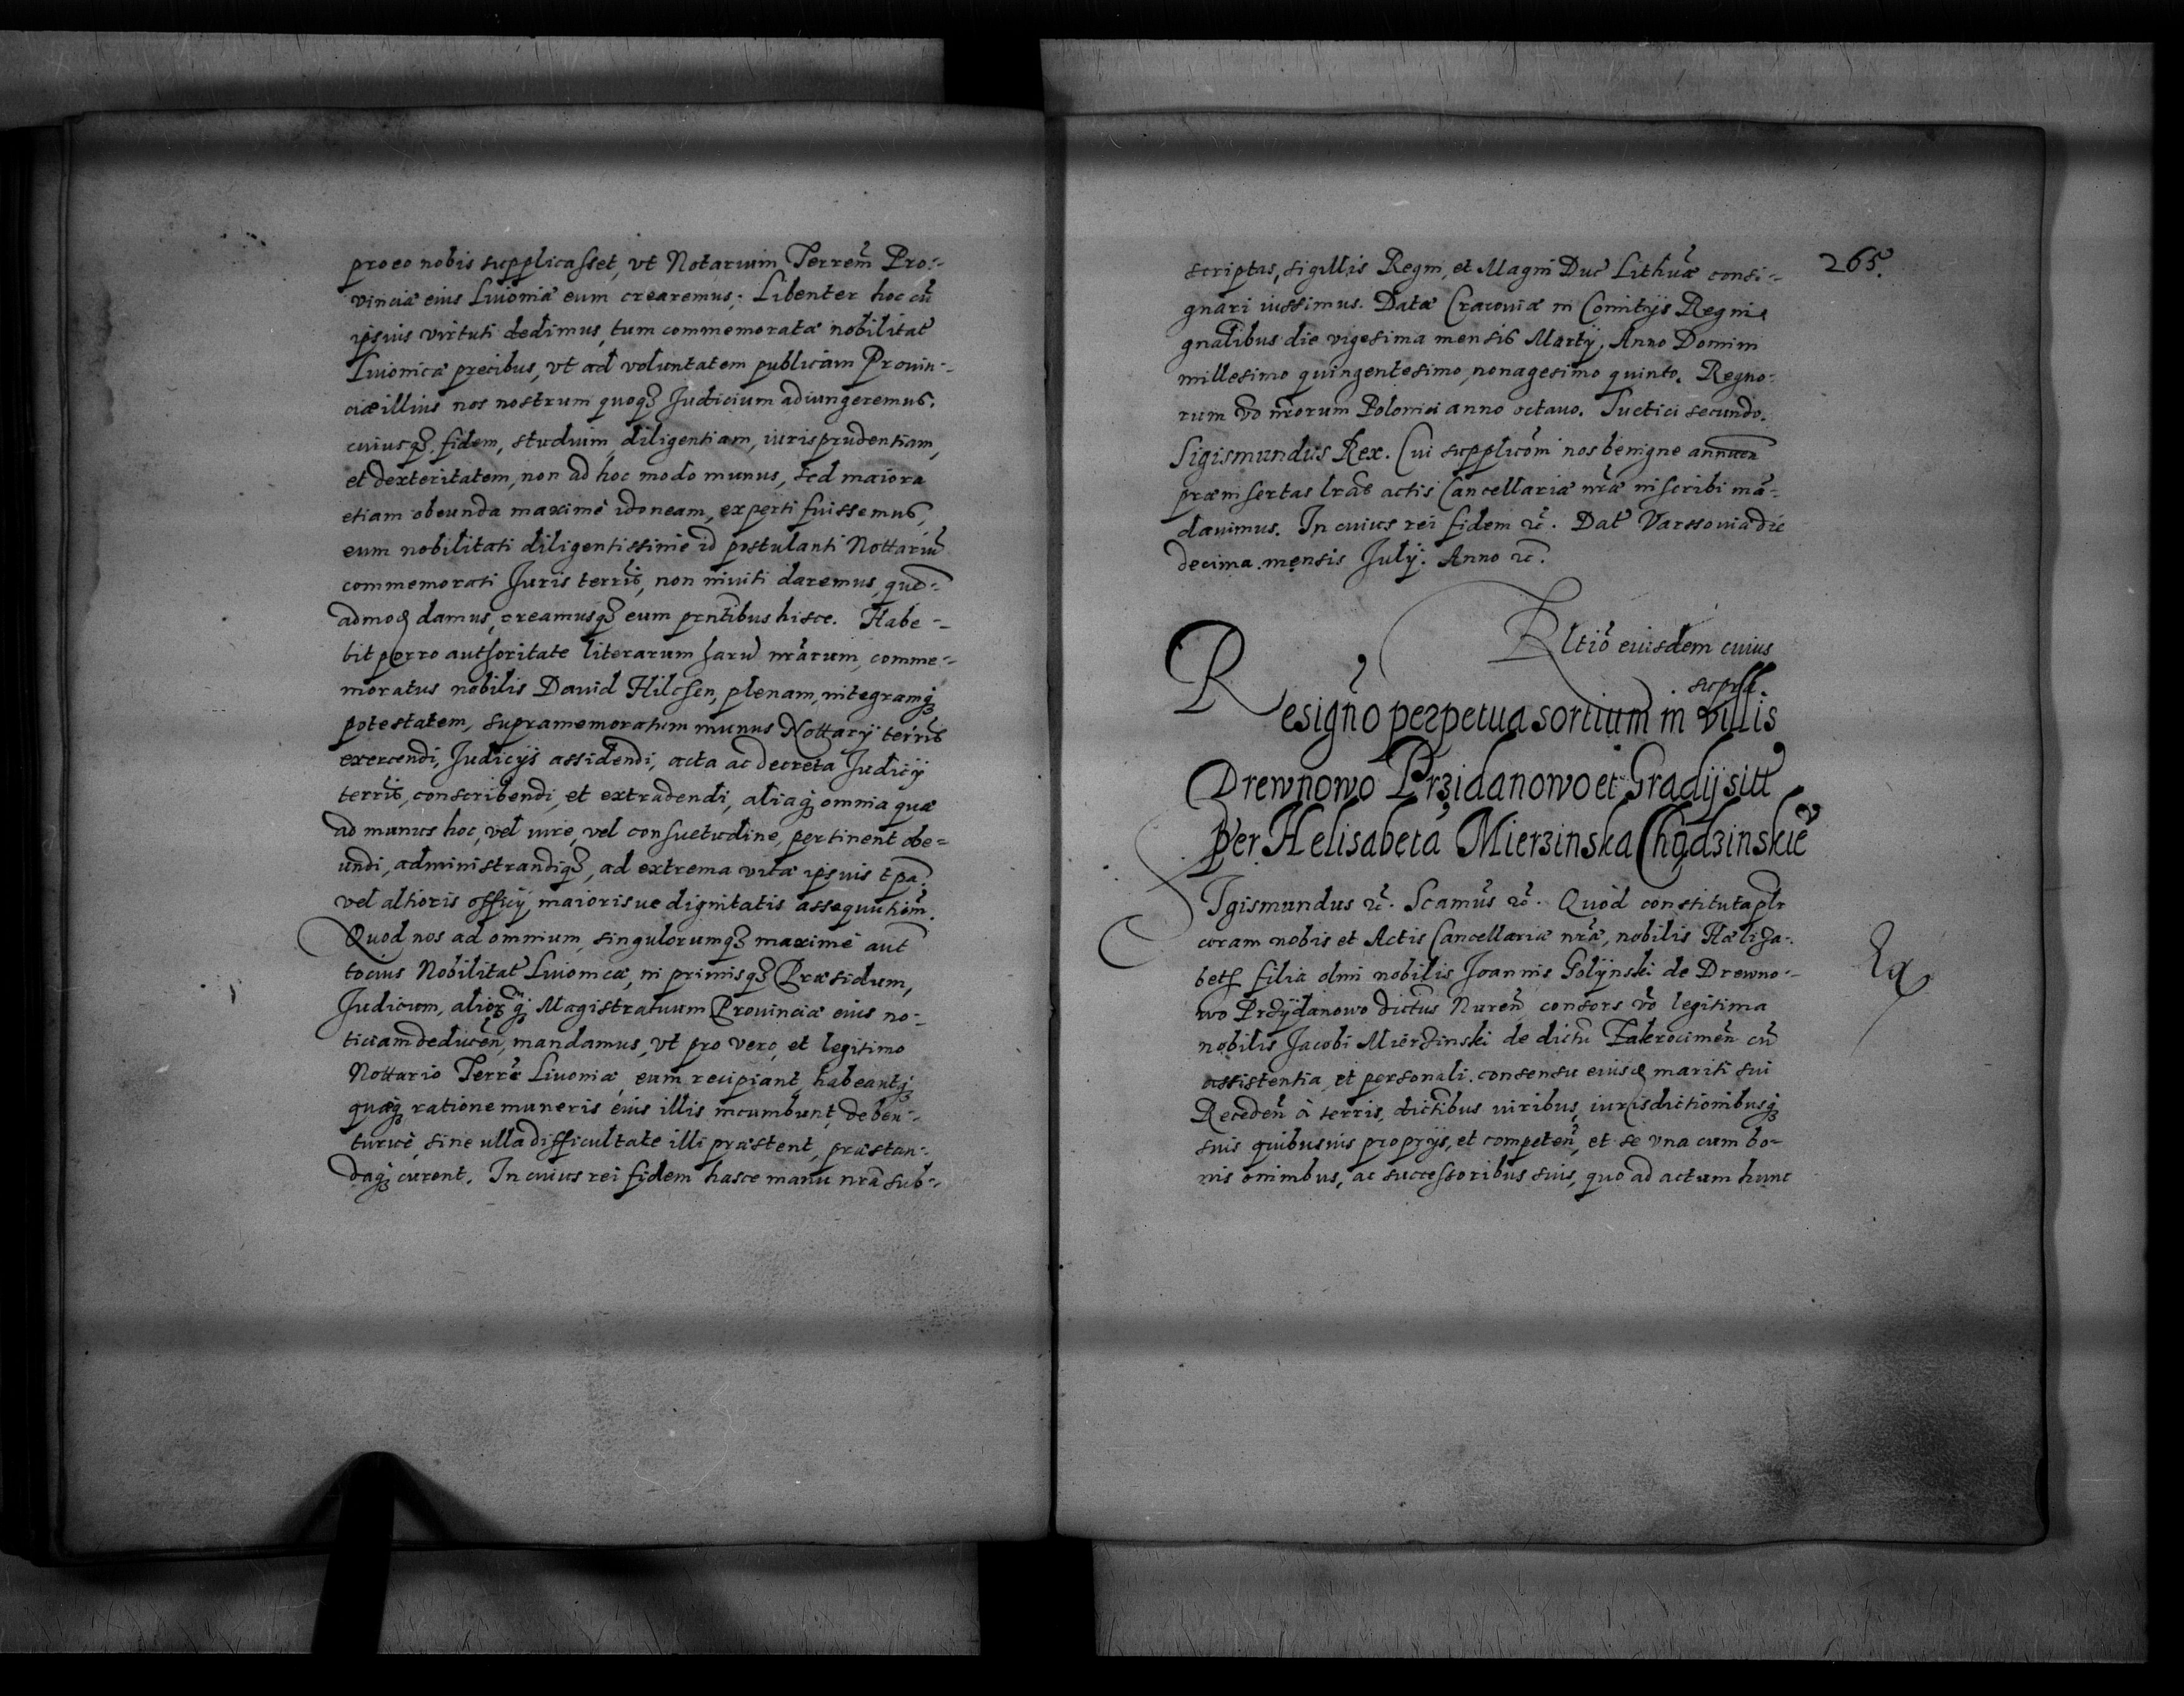 pro eo nobis supplicasset, vt Notarium Terrem̃ Pro-
vinciæ eius Liuoniæ eum crearemus: Libenter hoc cũ
ipsius virtuti dedimus, tum commemoratæ nobilitat̃
Liuonicæ precibus, vt ad voluntatem publicam Prouin-
ciæ illius nos nostrum quoqȝ Judicium adiungeremus.
cuiusqȝ fidem, studium, diligentiam, iurisprudentiam,
et dexteritatem, non ad hoc modo munus, sed maiora
etiam obeunda maximè idoneam, experti fuissemus,
eum nobilitati diligentissimè id postulanti Nottariũ
commemorati Juris terrĩs, non inuiti daremus, quẽ-
admoꝗ damus, creamusqȝ eum prñtibus hisce. Habe-
bit porro authoritate literarum harũ nr̃arum, comme-
moratus nobilis Dauid Hilchen, plenam, integramqȝ
potestatem, supramemoratum munus Nottarij terrĩs
exercendi, Judicijs assidendi, acta ac decreta Judicij
terrĩs, conscribendi, et extradendi, aliaqȝ omnia quæ
ad munus hoc, vel iure, vel consuetudine, pertinent obe-
undi, administrandiqȝ, ad extrema vitæ ipsius tp̃a.
vel altioris officij, maiorisue dignitatis assequutiom̃.
Quod nos ad omnium, singulorumqȝ maximè aut̃
tocius Nobilitat̃ Liuonicæ, in primisqȝ Præsidum,
Judicum, aliorꝝqȝ Magistratuum Prouinciæ eius no-
ticiam deducẽn, mandamus, vt pro vero, et legitimo
Nottario Terræ Liuoniæ, eum recipiant, habeantqȝ
quæqȝ ratione muneris eius illis incumbunt, deben-
turuè, sine ulla difficultate illi præstent, præstan-
daqȝ curent. In cuius rei fidem hasce manu nr̃a sub-
265.
scriptas, sigillis Regni, et Magni Duc̃ Lithuæ̃ consi-
gnari iussimus. Datæ Cracouiæ in Comitijs Regni
gnãlibus die vigesima mensis Martij, Anno Domini
millesimo quingentesimo, nonagesimo quinto. Regno-
rum võ nr̃orum Polonici anno octauo. Suetici secundo.
Sigismundus Rex. Cui supplicõni nos benigne annuen̄
præinsertas lr̃as actis Cancellariæ nr̃æ inscribi mã-
dauimus. In cuius rei fidem ꝛc̃. Dat̃ Varssouiæ die
decima mensis Julij. Anno ꝛc̃.
Rltiõ eiusdem cuius
supra.
Resigño perpetua sortium in villis
Drewnowo Przidanowo et Gradij sitt̃
Per Helisabetã Mierzinska Chądzinskiẽ
Sigismundus ꝛc̃. Scamus̃ ꝛc̃. Quod constituta plr̃
coram nobis et Actis Cancellariæ nr̃æ, nobilis Hæliza-
beth filia olmi nobilis Joannis Golijnski de Drewno-
wo Przijdanowo dictus Nuren̄ consors võ legitima
nobilis Jacobi Mierzinski de dictu Zakrocimen̄ cũ
assistentia, et personali consensu eiusꝗ mariti sui
Receden̄ à terris, dictibus viribus, iurisdictionibusqȝ
suis quibusuis proprijs, et competen̄, et se vna cum bo-
nis om̃nibus, ac successoribus suis, quo ad actum hunc